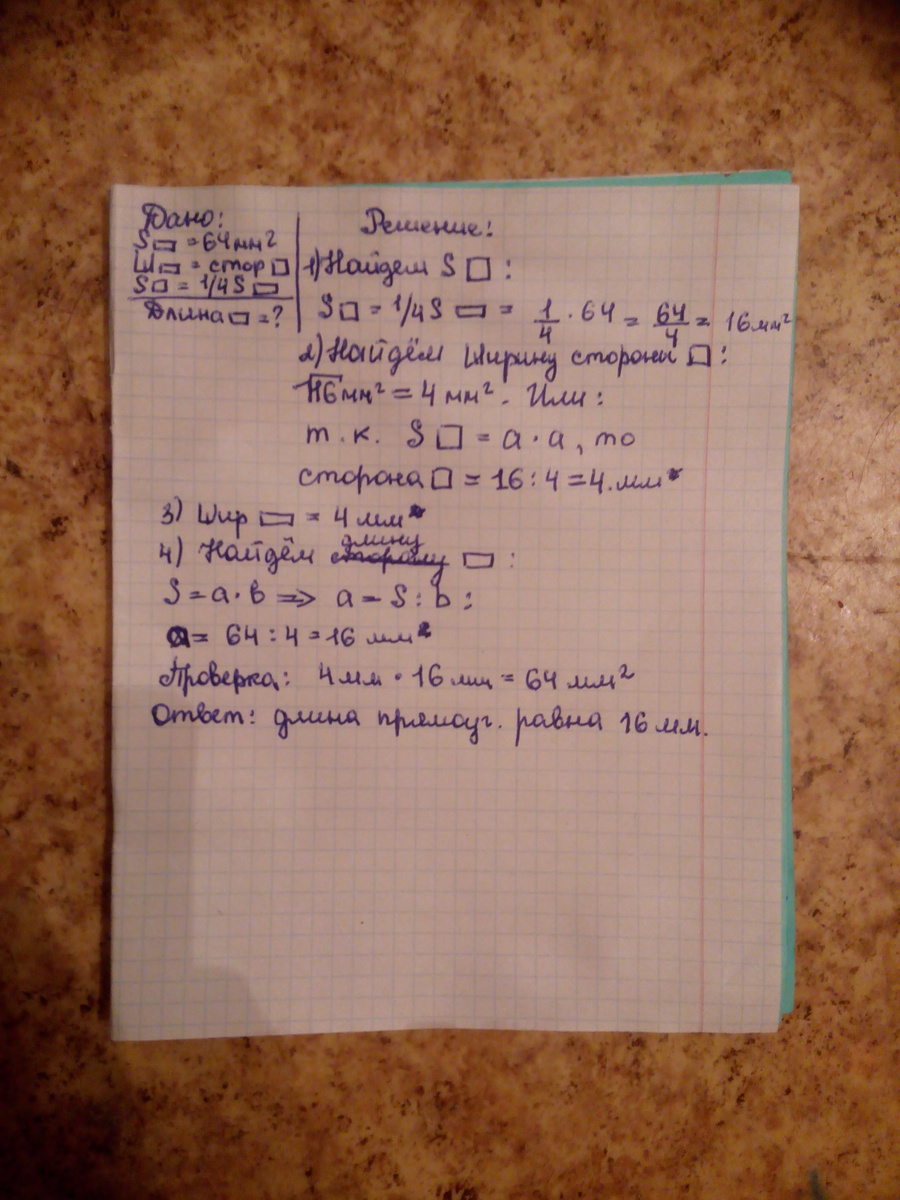 Дано:
S▭ = 64 мм²
Ш▭ = стор □
S□ = 1/4 S ▭
Длина ▭ = ?
Решение:
1) Найдем S □ :
S□ = 1/4 S ▭ = 1/4 · 64 = 64/4 = 16 мм²
2) Найдём ширину стороны □ :
√16 мм² = 4 мм². Или:
т.к. S □ = a · a, то
сторона □ = 16 : 4 = 4 мм
3) Шир ▭ = 4 мм
4) Найдём длину ▭ :
S = a · b ⇒ a = S : b ;
a = 64 : 4 = 16 мм
Проверка: 4 мм · 16 мм = 64 мм²
Ответ: длина прямоуг. равна 16 мм.